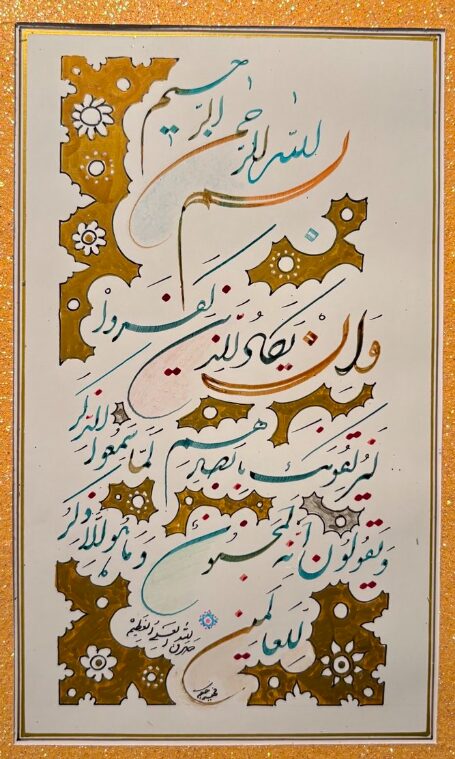 بسم الله الرحمن الرحیم
وان یکاد الذین کفروا
لیزلقونک بابصارهم لما سمعوا الذکر
ویقولون انه لمجنون وما هو الا ذکر
للعالمین
صدق الله العلی العظیم